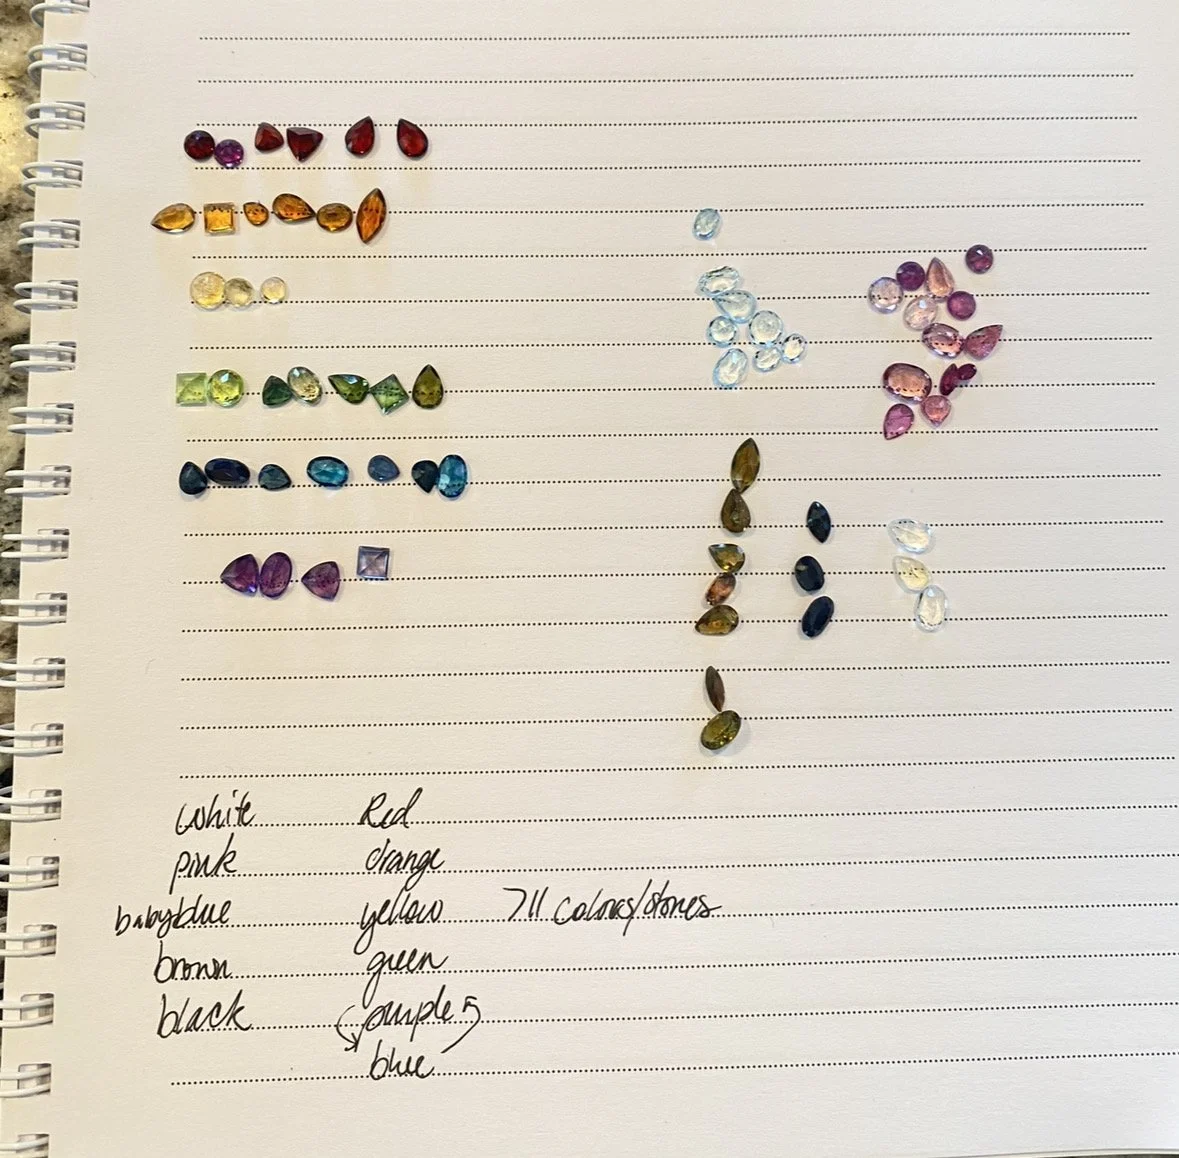 white Red
pink orange
babyblue yellow >11 colors/stones
brown green
black purple
blue